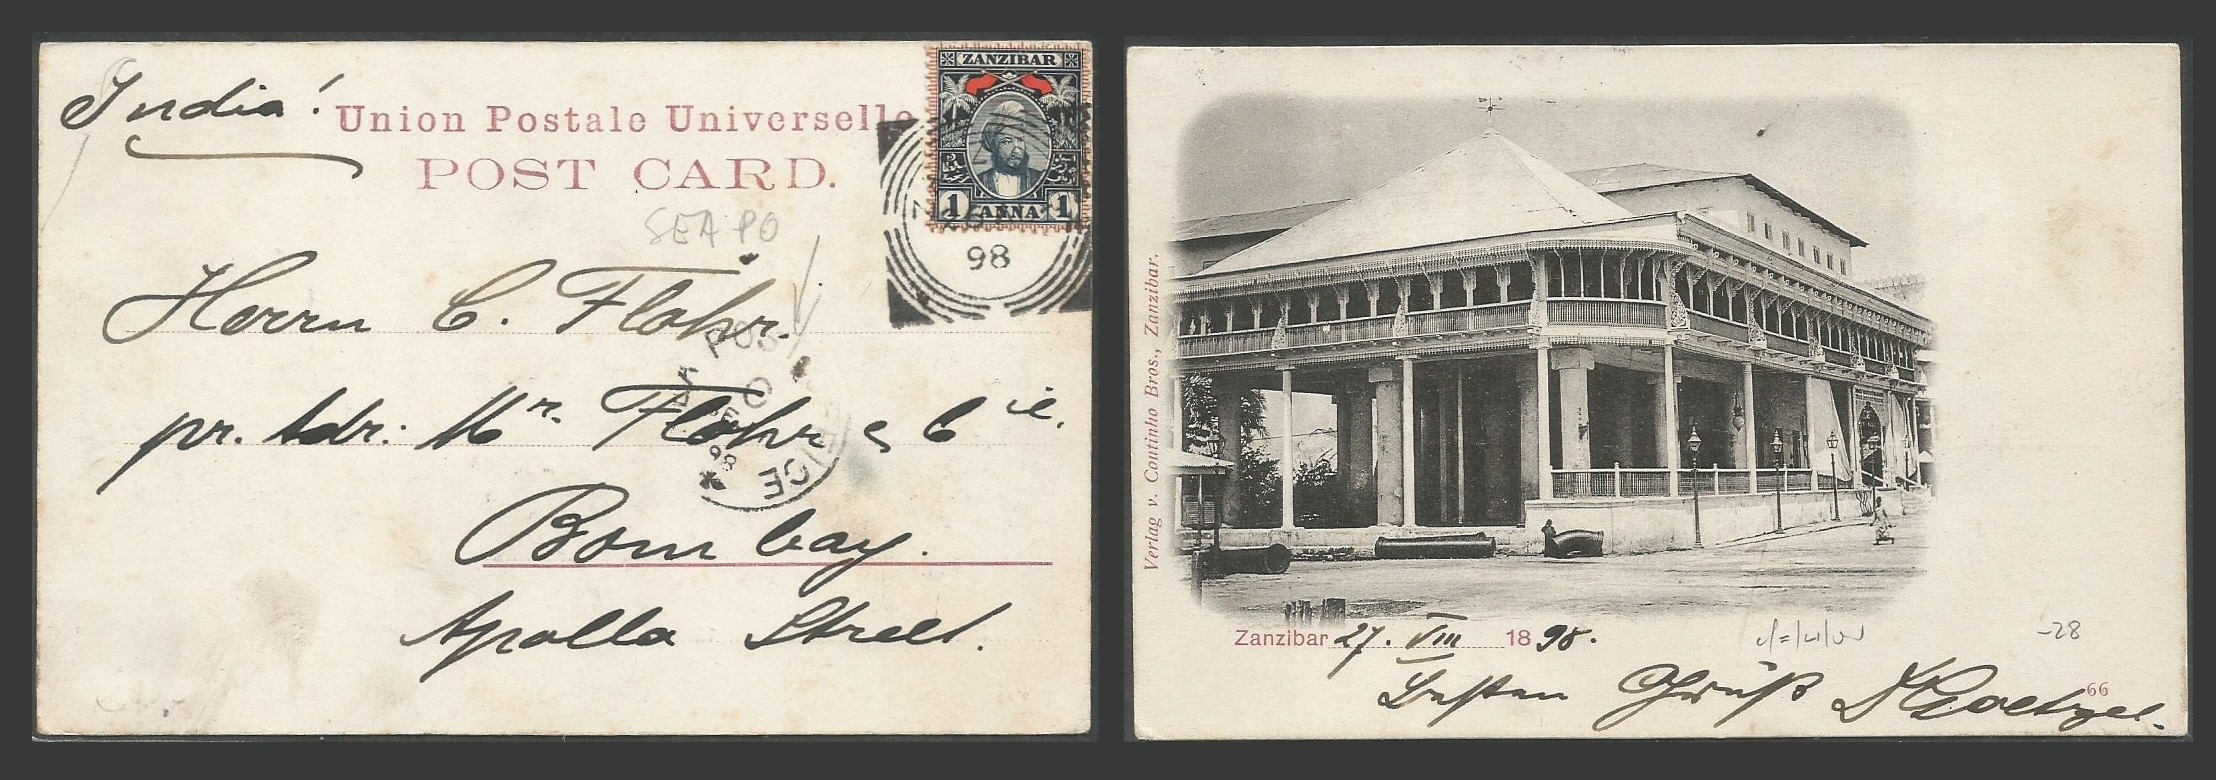 India!
Union Postale Universelle
POST CARD.
ZANZIBAR
1 ANNA 1
98
SEA PO
Herrn C. Flohr.
pr. Adr: Mrn. Flohr & Cie.
98
Bombay.
Apollo Street.
Verlag v. Coutinho Bros., Zanzibar.
Zanzibar 27. VIII 1898.
-28
Besten Gruß
66